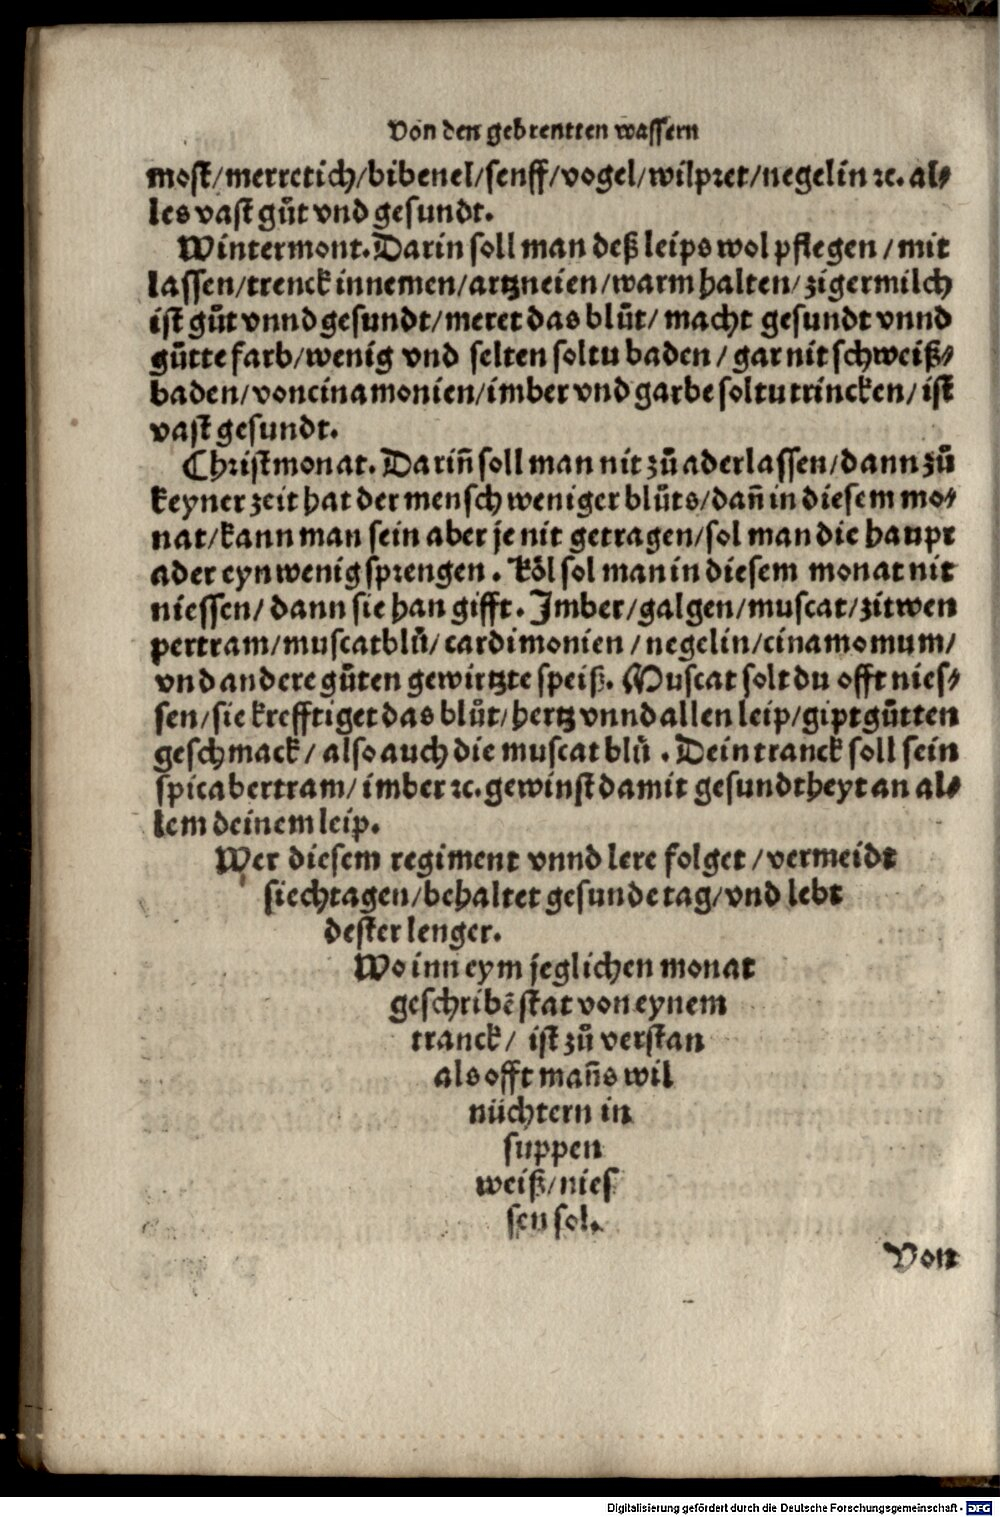 Von den gebrentten wassern
most/merretich/bibenel/senff/vogel/wilpret/negelin ꝛc. al⸗
les vast gůt vnd gesundt.
Wintermont. Darin soll man deß leips wol pflegen/mit
lassen/trenck innemen/artzneien/warm halten/zigermilch
ist gůt vnnd gesundt/meret das blůt/macht gesundt vnnd
gůtte farb/wenig vnd selten soltu baden/gar nit schweiß⸗
baden/von cinamonien/imber vnd garbe soltu trincken/ist
vast gesundt.
Christmonat. Dariñ soll man nit zů aderlassen/dann zů
keyner zeit hat der mensch weniger blůts/dañ in diesem mo⸗
nat/kann man sein aber je nit getragen/sol man die haupt
ader eyn wenig sprengen. Köl sol man in diesem monat nit
niessen/dann sie han gifft. Imber/galgen/muscat/zitwen
pertram/muscatblů/cardimonien/negelin/cinamomum/
vnd andere gůten gewirtzte speiß. Muscat solt du offt nies⸗
sen/sie krefftiget das blůt/hertz vnnd allen leip/gipt gůtten
geschmack/also auch die muscat blů. Dein tranck soll sein
spica bertram/imber ꝛc. gewinst damit gesundtheyt an al⸗
lem deinem leip.
Wer diesem regiment vnnd lere folget/vermeidt
siechtagen/behaltet gesunde tag/vnd lebt
dester lenger.
Wo inn eym jeglichen monat
geschribẽ stat von eynem
tranck/ ist zů verstan
als offt mañs wil
nüchtern in
suppen
weiß/nies
sen sol.
Von
Digitalisierung gefördert durch die Deutsche Forschungsgemeinschaft - DFG